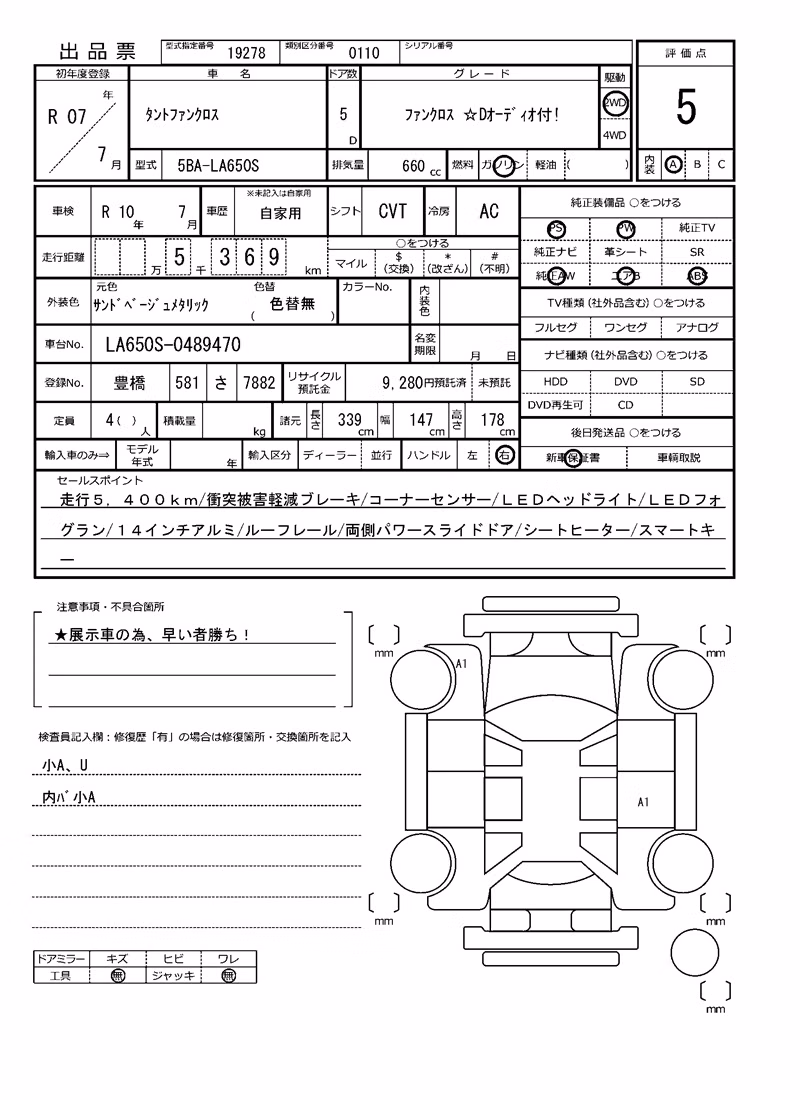 出品票 型式指定番号 19278 類別区分番号 0110 シリアル番号
評価点
5
内装 A B C
初年度登録 車名 ドア数 グレード 駆動
R 07 年 7 月
タントファンクロス
5 D
ファンクロス ☆Dオーディオ付!
2WD
4WD
型式 5BA-LA650S 排気量 660 cc 燃料 ガソリン 軽油 ( )
車検 R 10 年 7 月 車歴 ※未記入は自家用 自家用 シフト CVT 冷房 AC
走行距離 万 5 千 3 6 9 km
○をつける
マイル $ (交換) * (改ざん) # (不明)
外装色 元色 サンドベージュメタリック 色替 ( 色替無 ) カラーNo. 内装色
車台No. LA650S-0489470 名変期限 月 日
登録No. 豊橋 581 さ 7882 リサイクル預託金 9,280円預託済 未預託
定員 4 ( ) 人 積載量 kg 諸元 長さ 339 cm 幅 147 cm 高さ 178 cm
輸入車のみ⇒ モデル年式 年 輸入区分 ディーラー 並行 ハンドル 左 右
純正装備品 ○をつける
PS PW 純正TV
純正ナビ 革シート SR
純正AW エアB ABS
TV種類 (社外品含む) ○をつける
フルセグ ワンセグ アナログ
ナビ種類 (社外品含む) ○をつける
HDD DVD SD
DVD再生可 CD
後日発送品 ○をつける
新車保証書 車輌取説
セールスポイント
走行5,400km/衝突被害軽減ブレーキ/コーナーセンサー/LEDヘッドライト/LEDフォ
グラン/14インチアルミ/ルーフレール/両側パワースライドドア/シートヒーター/スマートキ
ー
注意事項・不具合箇所
★展示車の為、早い者勝ち!
検査員記入欄:修復歴「有」の場合は修復箇所・交換箇所を記入
小A、U
内バ小A
ドアミラー キズ ヒビ ワレ
工具 無 ジャッキ 無
mm mm
A1
A1
mm mm
mm